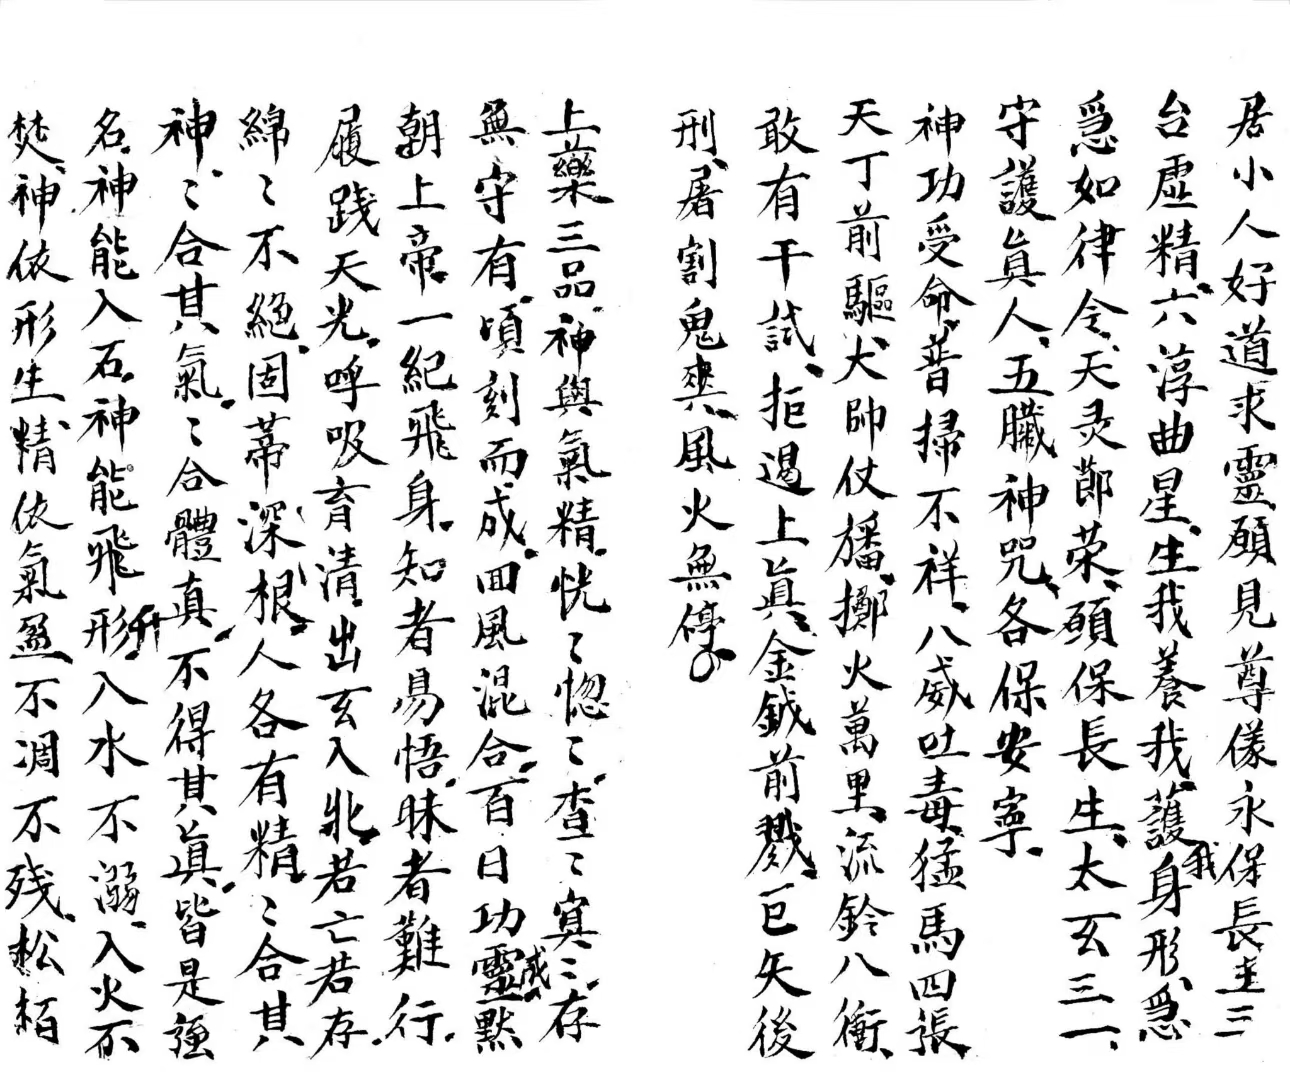 居小人好道求靈願見尊儀永保長圭三
台虛精六淳曲星生我養我護我身形急
急如律令天灵節荣願保長生太玄三一
守護真人五臟神咒各保安寧
神功受命普掃不祥八威吐毒猛馬四張
天丁前驅犬帥仗播擲火萬里流鈴八衝
敢有干試拒遏上真金鉞前戮巨矢後
刑屠割鬼爽風火無停
上藥三品神與氣精恍〻惚〻查〻寞〻存
無守有頃刻而成回風混合百日功靈默
朝上帝一紀飛身知者易悟昧者難行
履踐天光呼吸育清出玄入牝若亡若存
綿〻不絕固蒂深根人各有精〻合其
神〻合其氣〻合體真不得其真皆是強
名神能入石神能飛形入水不溺入火不
焚神依形生精依氣盈不凋不残松栢